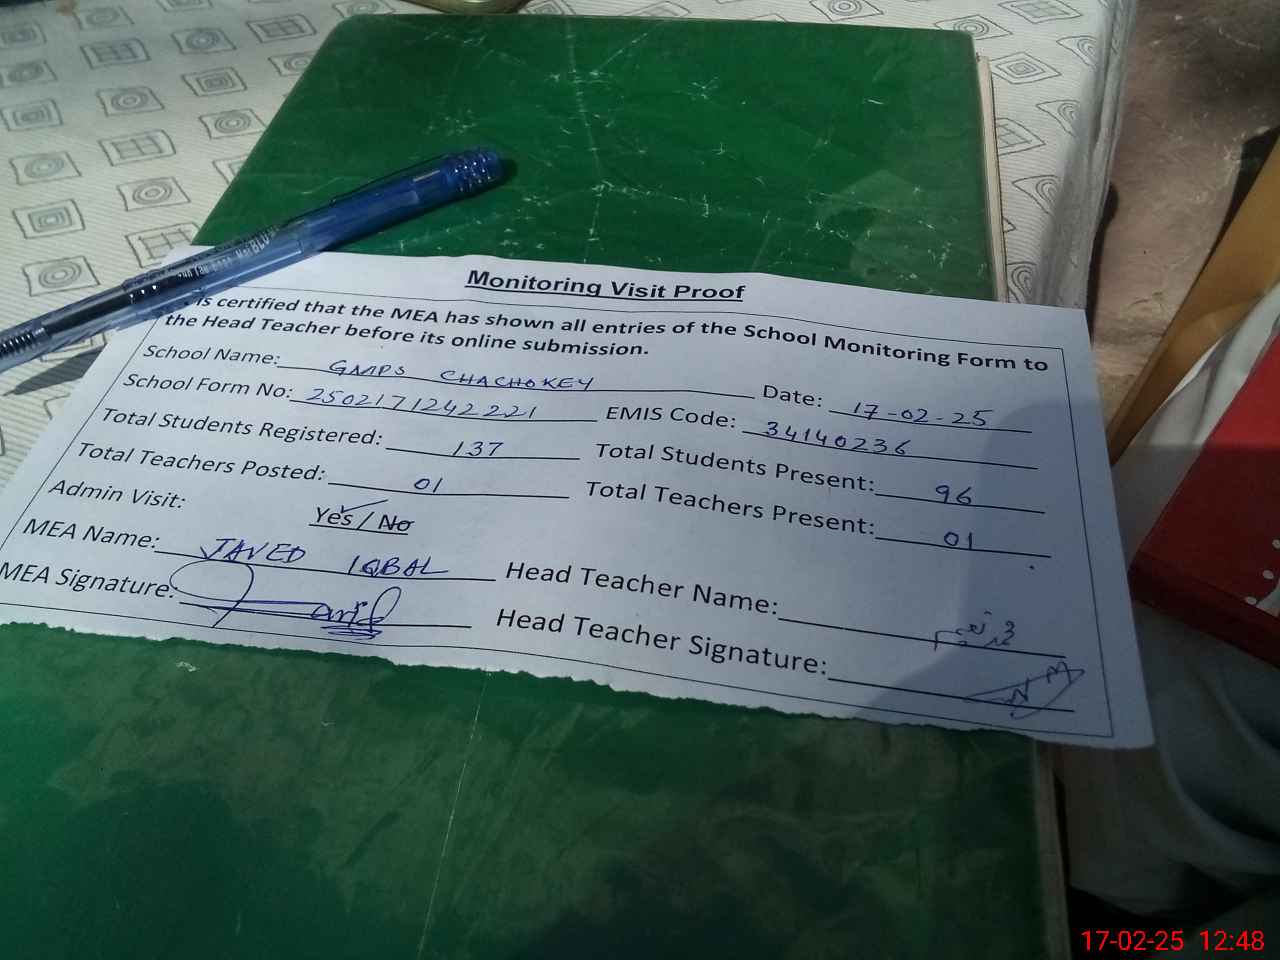 Monitoring Visit Proof
is certified that the MEA has shown all entries of the School Monitoring Form to
the Head Teacher before its online submission.
School Name: GMPS CHACHOKEY Date: 17-02-25
School Form No: 2502171242221 EMIS Code: 34140236
Total Students Registered: 137 Total Students Present: 96
Total Teachers Posted: 01 Total Teachers Present: 01
Admin Visit: Yes / No
MEA Name: JAVED IQBAL Head Teacher Name:
MEA Signature: Head Teacher Signature:
17-02-25 12:48